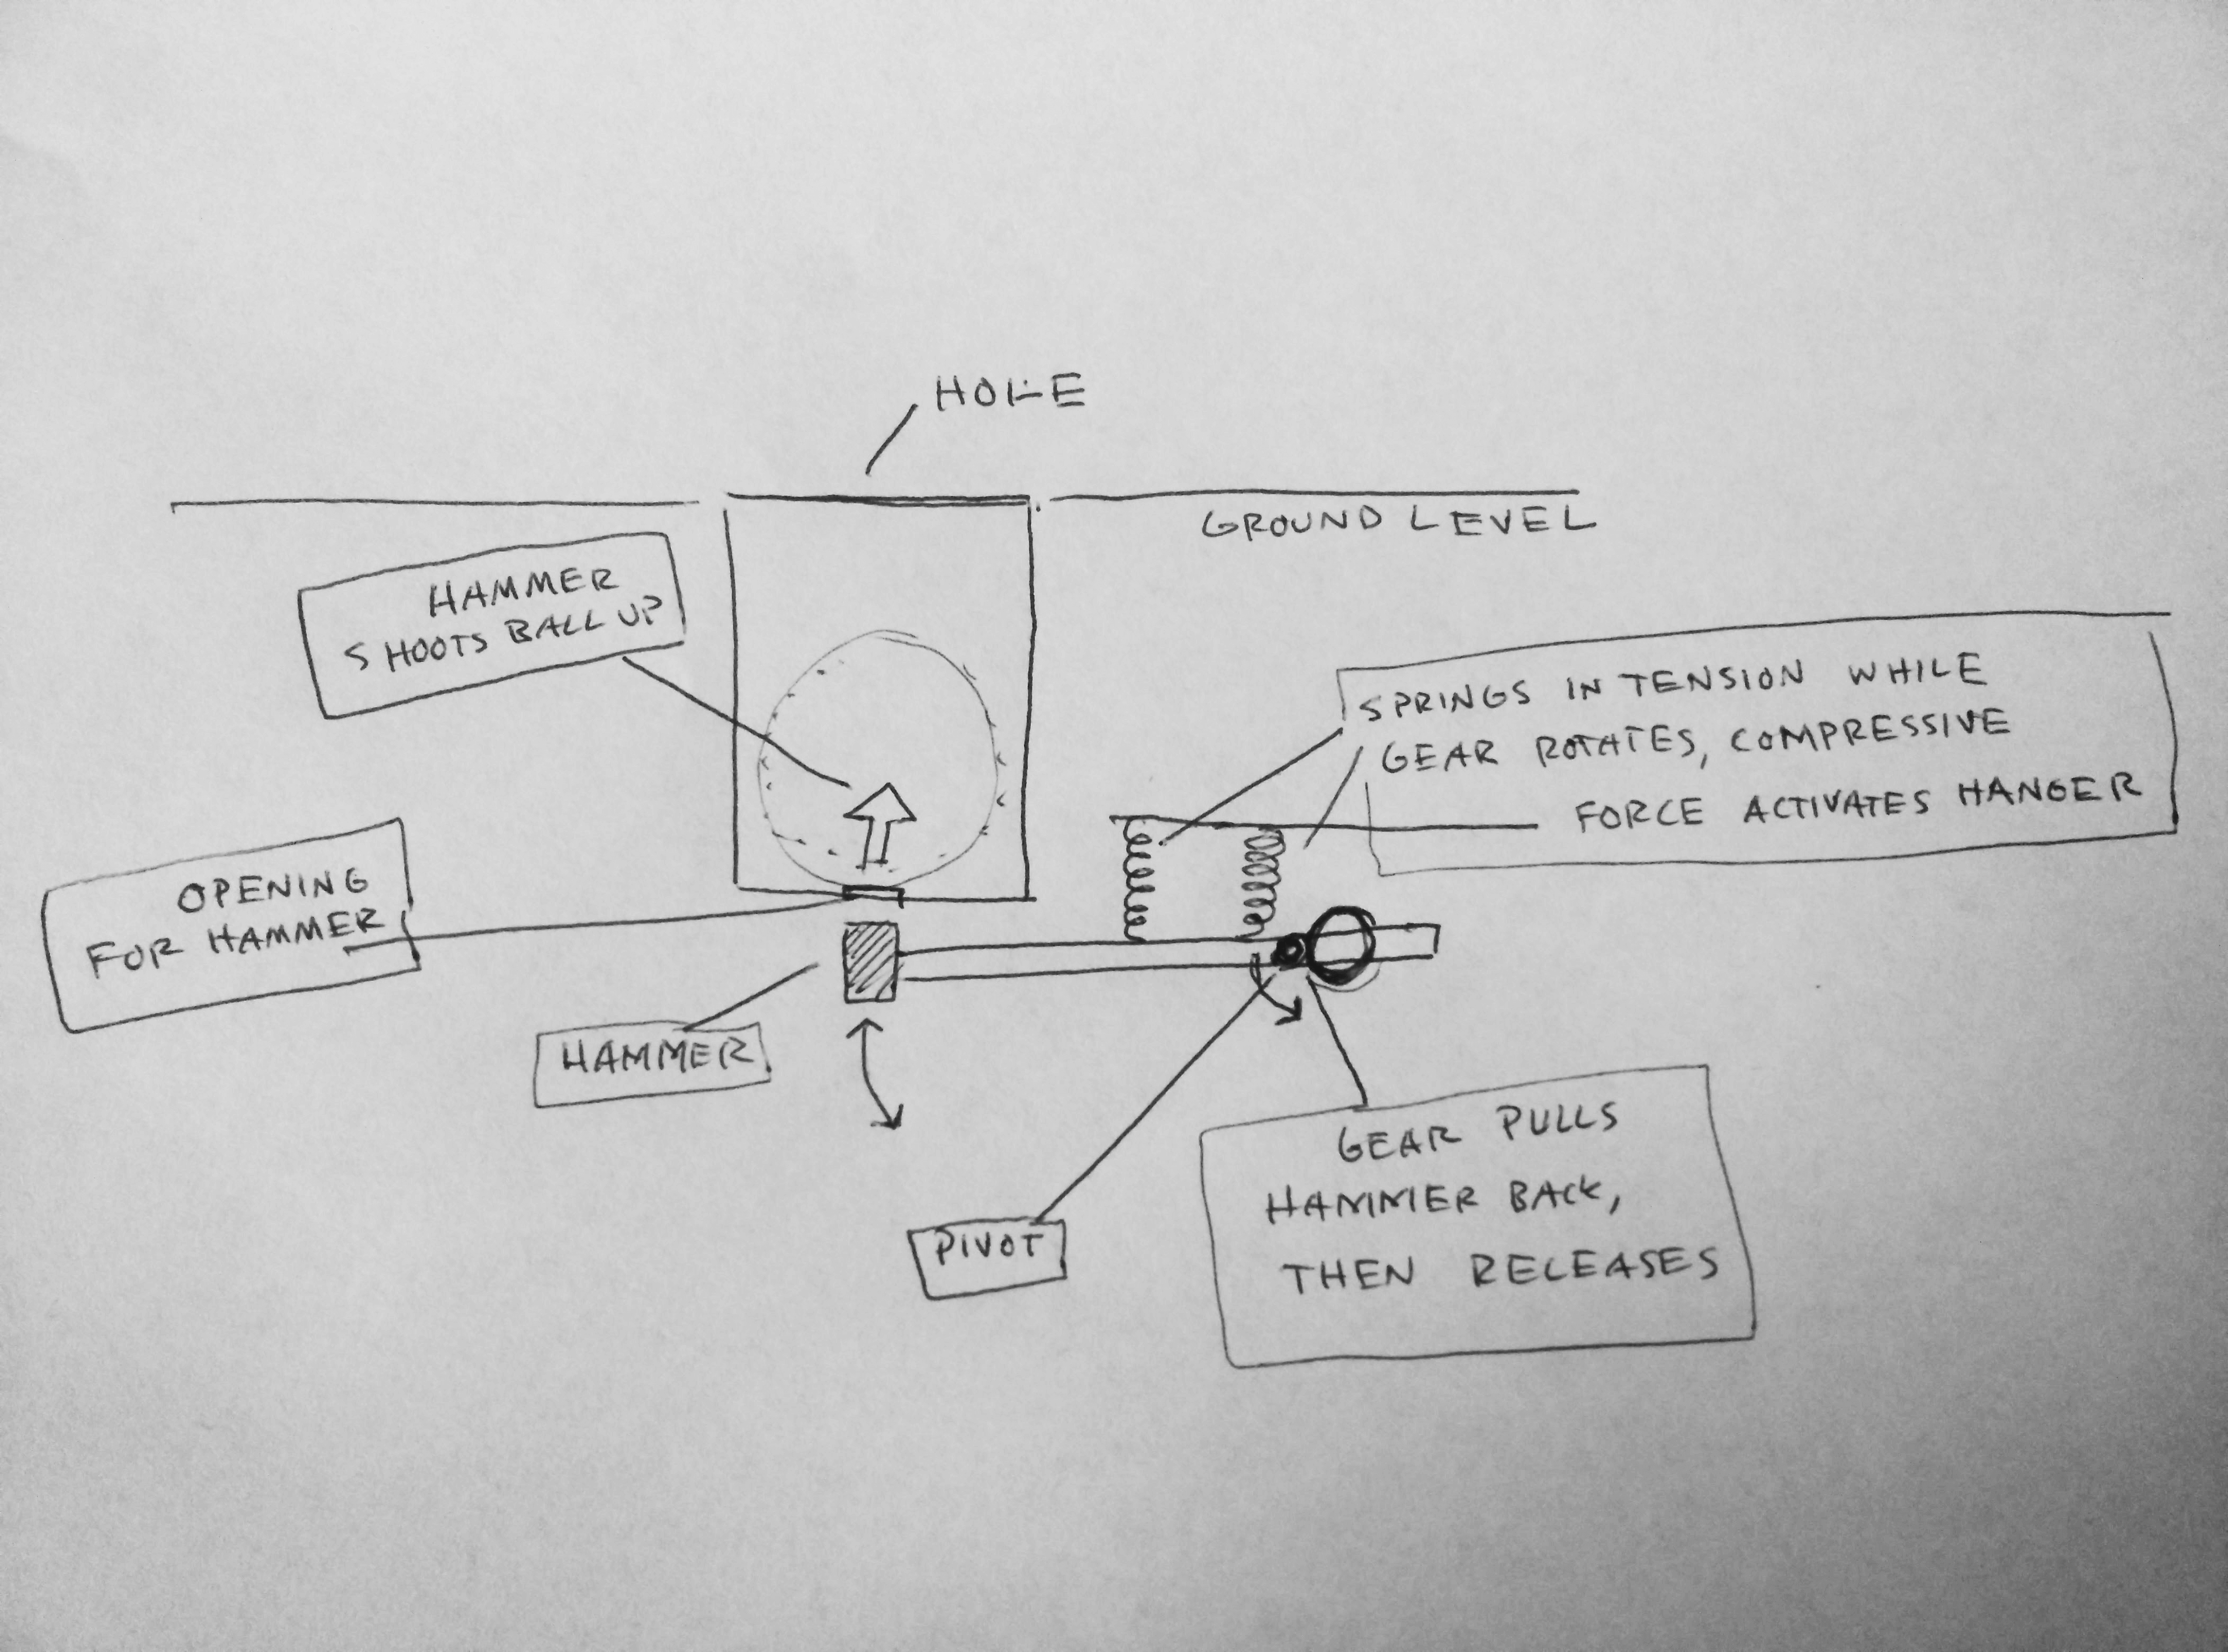 HOLE
GROUND LEVEL
HAMMER
SHOOTS BALL UP
SPRINGS IN TENSION WHILE
GEAR ROTATES, COMPRESSIVE
FORCE ACTIVATES HANGER
OPENING
FOR HAMMER
HAMMER
PIVOT
GEAR PULLS
HAMMER BACK,
THEN RELEASES